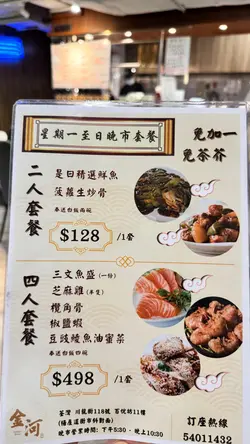 星期一至日晚市套餐
免加一
免茶芥
二人套餐
是日精選鮮魚
菠蘿生炒骨
奉送白飯兩碗
$128 /1套
四人套餐
三文魚盛(一份)
芝麻雞(半隻)
欖角骨
椒鹽蝦
豆豉鯪魚油蜜菜
奉送白飯四碗
$498 /1套
金河
荃灣 川龍街118號 百悦坊11樓
(楊屋道街市斜對面)
晚市營業時間: 下午5:30 - 晚上10:30
訂座熱線
54011432